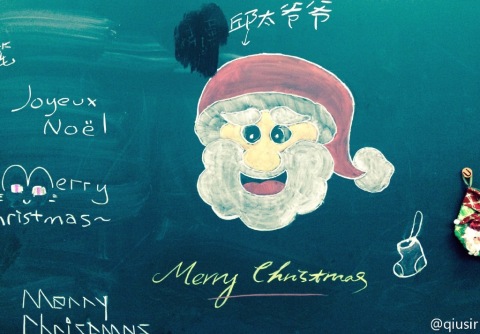 邱太爷爷
Joyeux
Noël
Merry
Christmas~
Merry Christmas
Merry
Christmas
@qiusir